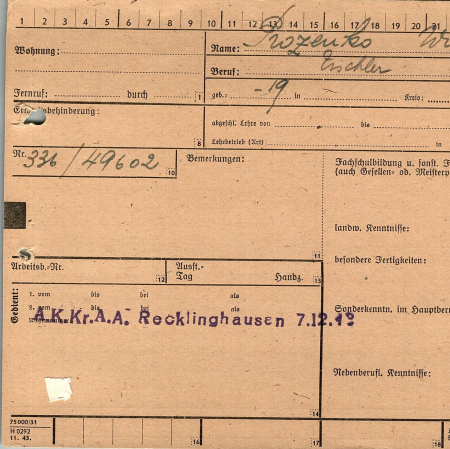 1 2 3 4 5 6 7 8 9 10 11 12 13 14 15 16 17 18 19 20 21
Wohnung:
Name: Prozenko
Beruf: Tischler
Fernruf: durch 1
geb.: -19 in Kreis:
abgeschl. Lehre von bis
8 Lehrbetrieb (Art) in
Nr. 336/49602 10
Bemerkungen: 11
Fachschulbildung u. sonst.
(auch Gesellen- od. Meisterp
landw. Kenntnisse:
besondere Fertigkeiten:
Arbeitsb.-Nr. 12
Ausst.-
Tag Handz. 13
Gedient:
1. vom bis bei als
2. vom bis bei als
A.K.Kr.A.A. Recklinghausen 7.12.43
Sonderkenntn. im Hauptber
Nebenberufl. Kenntnisse:
14
75000/31
H 0292
11. 43.
16 17 18